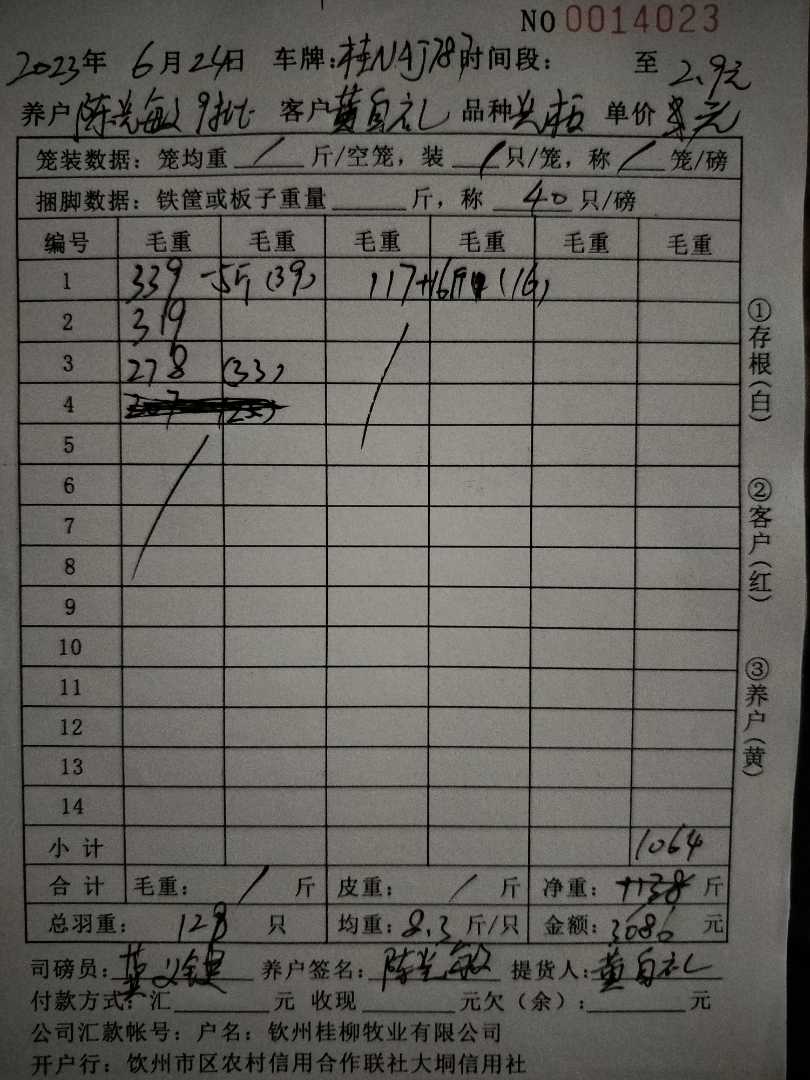 NO 0014023
2023年 6月24日 车牌:桂NAJ787时间段: 至 2.9元
养户 陈光敏 9批 客户 黄自礼 品种 单价 元
笼装数据: 笼均重 / 斤/空笼, 装 / 只/笼, 称 / 笼/磅
捆脚数据: 铁筐或板子重量 斤, 称 40 只/磅
编号 毛重 毛重 毛重 毛重 毛重 毛重
1 339 -5斤 (39) 117 (16)
2 319
3 278 (33)
4
5
6
7
8
9
10
11
12
13
14
小计 1064
合计 毛重: / 斤 皮重: / 斤 净重: 1138 斤
总羽重: 128 只 均重: 8.3 斤/只 金额: 3086 元
司磅员: 养户签名: 陈光敏 提货人: 黄自礼
付款方式: 汇 元 收现 元欠(余): 元
公司汇款帐号: 户名: 钦州桂柳牧业有限公司
开户行: 钦州市区农村信用合作联社大垌信用社
①存根(白)
②客户(红)
③养户(黄)